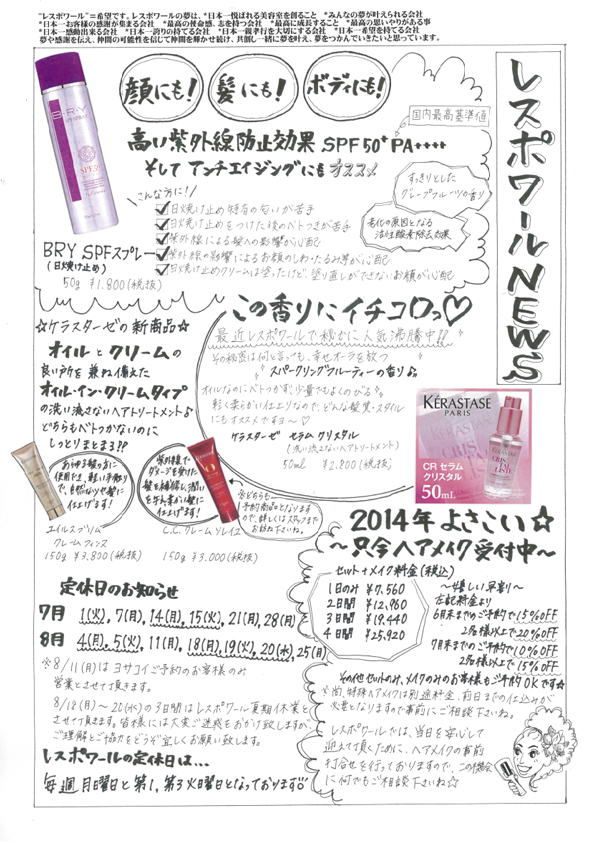 "レスポワール"=希望です。レスポワールの夢は、*日本一悦ばれる美容室を創ること *みんなの夢が叶えられる会社
*日本一お客様の感謝が集まる会社 *最高の使命感、志を持つ会社 *最高に成長すること *最高の思いやりがある事
*日本一感動出来る会社 *日本一誇りの持てる会社 *日本一親孝行を大切にする会社 *日本一希望を持てる会社
夢や感謝を伝え、仲間の可能性を信じて仲間を輝かせ続け、共創し一緒に夢を叶え、夢をつかんでいきたいと思っています。
レスポワールNEWS
顔にも!
髪にも!
ボディにも!
国内最高基準値
高い紫外線防止効果 SPF50+ PA++++
そして アンチエイジングにも オススメ
すっきりとした
グレープフルーツの香り
老化の原因となる
活性酸素除去効果
こんな方に!
日焼け止め特有の匂いが苦手
日焼け止めをつけた後のベトつきが苦手
紫外線による髪への影響が心配
紫外線の影響によるお顔のしわ・たるみ等が心配
日焼け止めクリームは塗ったけど、塗り直しができないお顔が心配
BRY SPFスプレー
(日焼け止め)
50g ¥1.800(税抜)
この香りにイチコロっ♡
最近レスポワールで秘かに人気沸騰中!!
その秘密は何と言っても、幸せオーラを放つ
スパークリングフルーティーの香り♪
オイルなのにベトつかず、少量でもよくのびる
軽く柔らかい仕上りなので、どんな髪質・スタイル
にもオススメですヨ〜♡
ケラスターゼ セラム クリスタル
(洗い流さないヘアトリートメント)
50ml ¥2.800(税抜)
KÉRASTASE
PARIS
CR セラム
クリスタル
50mL
☆ケラスターゼの新商品☆
オイルとクリームの
良い所を兼ね備えた
オイル・イン・クリームタイプ
の洗い流さないヘアトリートメント♪
どちらもベトつかないのに
しっとりまとまる!!
あらゆる髪の方に
使用でき、軽い手触り
で、自然なツヤ髪に
仕上げます!
紫外線で
ダメージを受けた
髪を補修し、潤い
を与え柔かい髪に
仕上げます!
※どちらも
予約商品となります
ので、詳しくはスタッフまで
お尋ね下さいね。
ユイルスブリム
クレームフィンヌ
150g ¥3.800(税抜)
C.C.クレームソレイユ
150g ¥3.000(税抜)
2014年よさこい☆
〜只今ヘアメイク受付中〜
セット+メイク料金(税込)
1日のみ ¥7.560
2日間 ¥12.960
3日間 ¥19.440
4日間 ¥25.920
〜嬉しい早割〜
左記料金より
6月末までのご予約で15%OFF
2名様以上で20%OFF
7月末までのご予約で10%OFF
2名様以上で15%OFF
その他セットのみ、メイクのみのお客様もご予約OKです☆
※尚、特殊ヘアメイクは別途料金、前日までの仕込みが
必要となりますので事前にご相談下さいね。
レスポワールでは、当日を安心して
迎えて頂くために、ヘアメイクの事前
打合せを行っておりますので、この機会
に何でもご相談下さいね☆
定休日のお知らせ
7月 1(火),7(月),14(月),15(火),21(月),28(月)
8月 4(月),5(火),11(月),18(月),19(火),20(水),25(月)
※8/11(月)はヨサコイご予約のお客様のみ
営業とさせて頂きます。
8/18(月)〜20(水)の3日間はレスポワール夏期休業と
させて頂きます。皆様には大変ご迷惑をおかけ致しますが、
ご理解とご協力をどうぞ宜しくお願い致します。
レスポワールの定休日は…
毎週月曜日と第1,第3火曜日となっております